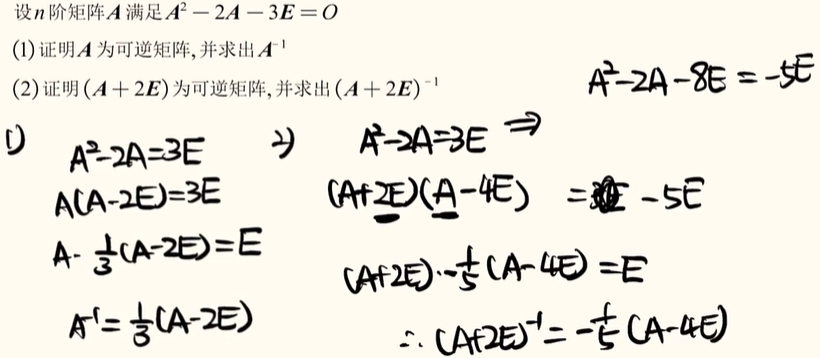 设n阶矩阵A满足A² − 2A − 3E = O
(1)证明A为可逆矩阵,并求出A⁻¹
(2)证明(A + 2E)为可逆矩阵,并求出(A + 2E)⁻¹
A²-2A-8E = -5E
1)
A²-2A=3E
A(A-2E)=3E
A·⅓(A-2E)=E
A⁻¹=⅓(A-2E)
2)
A²-2A=3E ⇒
(A+2E)(A-4E) = -5E
(A+2E)·-⅕(A-4E)=E
∴(A+2E)⁻¹=-⅕(A-4E)